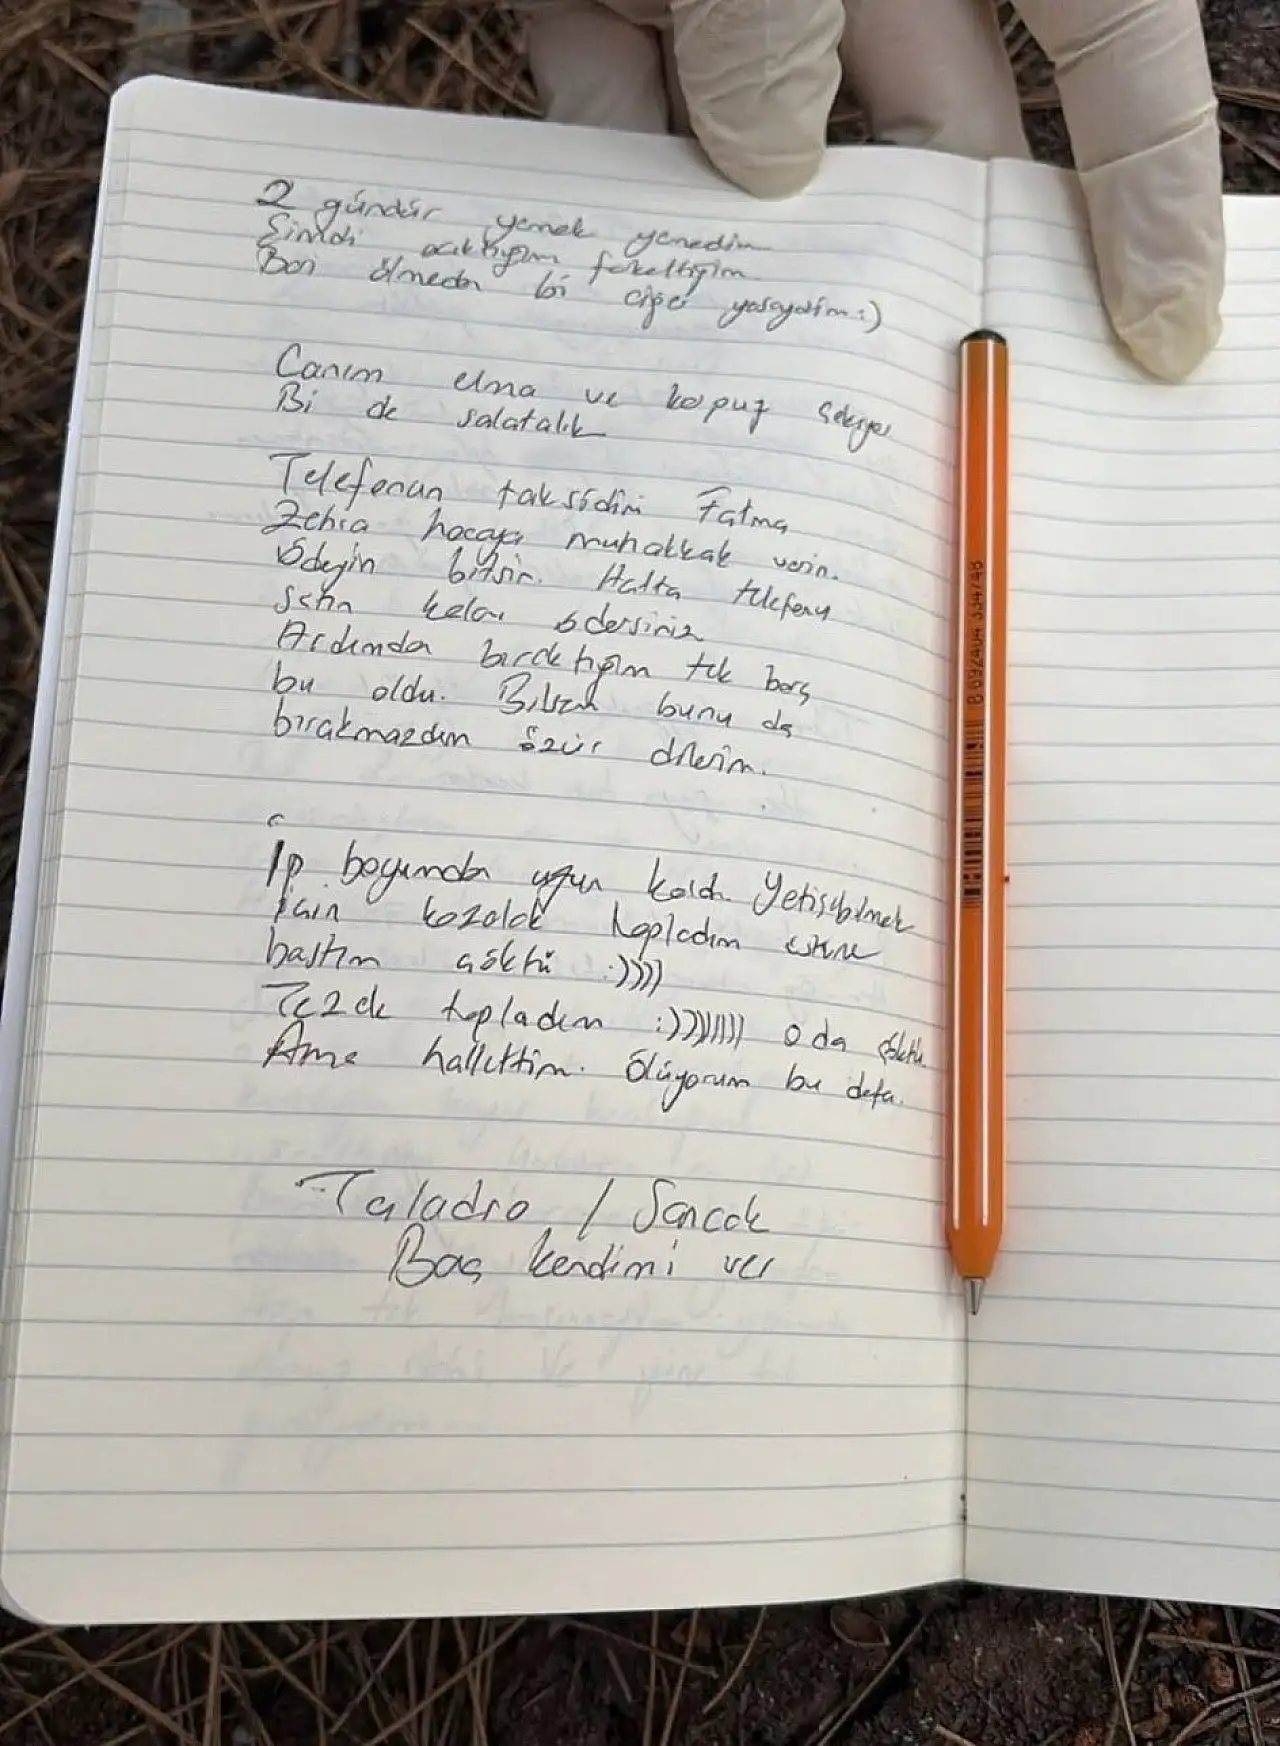 2 gündür yemek yemedim
Şimdi acıktığım fakettiğim
Bari ölmeden bi cips yaseydim :)
Canım elma ve karpuz çekiyor
Bi de salatalık
Telefonun taksidini Fatma
Zehra hocaya muhakkak verin.
Ödeyin bitsin. Hatta telefonu
satın kalanı ödersiniz
Ardımda bıraktığım tek borç
bu oldu. Bilsem bunu da
bırakmazdım özür dilerim.
İp boyumdan uzun kaldı. Yetişebilmek
için kozalak topladım üstüne
bastım çöktü :))))
Tezek topladım :))))))))) o da çöktü.
Ama hallettim. Ölüyorum bu defa.
Taladro / Sancak
Baş kendimi ver
8 692404 334748